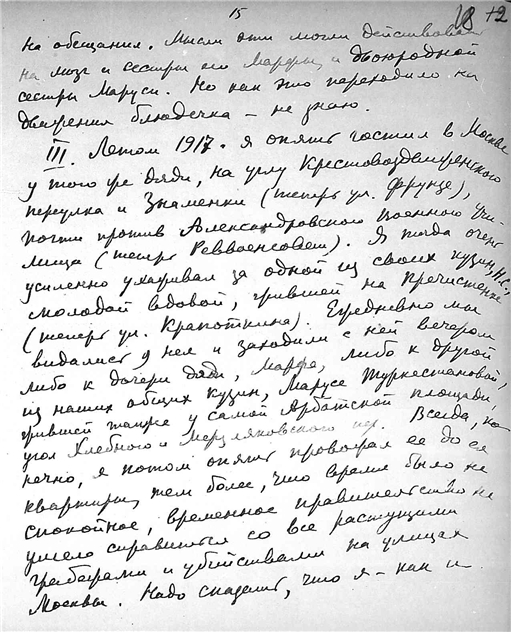 15
18 +2
на обещания. Мысли эти могли действовать
на мозг и сестры его Марфы, и двоюродной
сестры Маруси. Но как это переходило на
движения блюдечка – не знаю.
III. Летом 1917 г. я опять гостил в Москве
у того же дяди, на углу Крестовоздвиженского
переулка и Знаменки (теперь ул. Фрунзе),
почти против Александровского Военного Учи-
лища (теперь Реввоенсовет). Я тогда очень
усиленно ухаживал за одной из своих кузин, Н.С.,
молодой вдовой, жившей на Пречистенке
(теперь ул. Крапоткина). Ежедневно мы
видались у нее и заходили с ней вечером
либо к дочери дяди, Марфе, либо к другой
из наших общих кузин, Марусе Туркестановой,
жившей также у самой Арбатской площади,
угол Хлебного и Мерзляковского пер. Всегда, ко-
нечно, я потом опять провожал ее до ея
квартиры, тем более, что время было не
спокойное, временное правительство не
умело справиться со все растущими
грабежами и убийствами на улицах
Москвы. Надо сказать, что я – как и